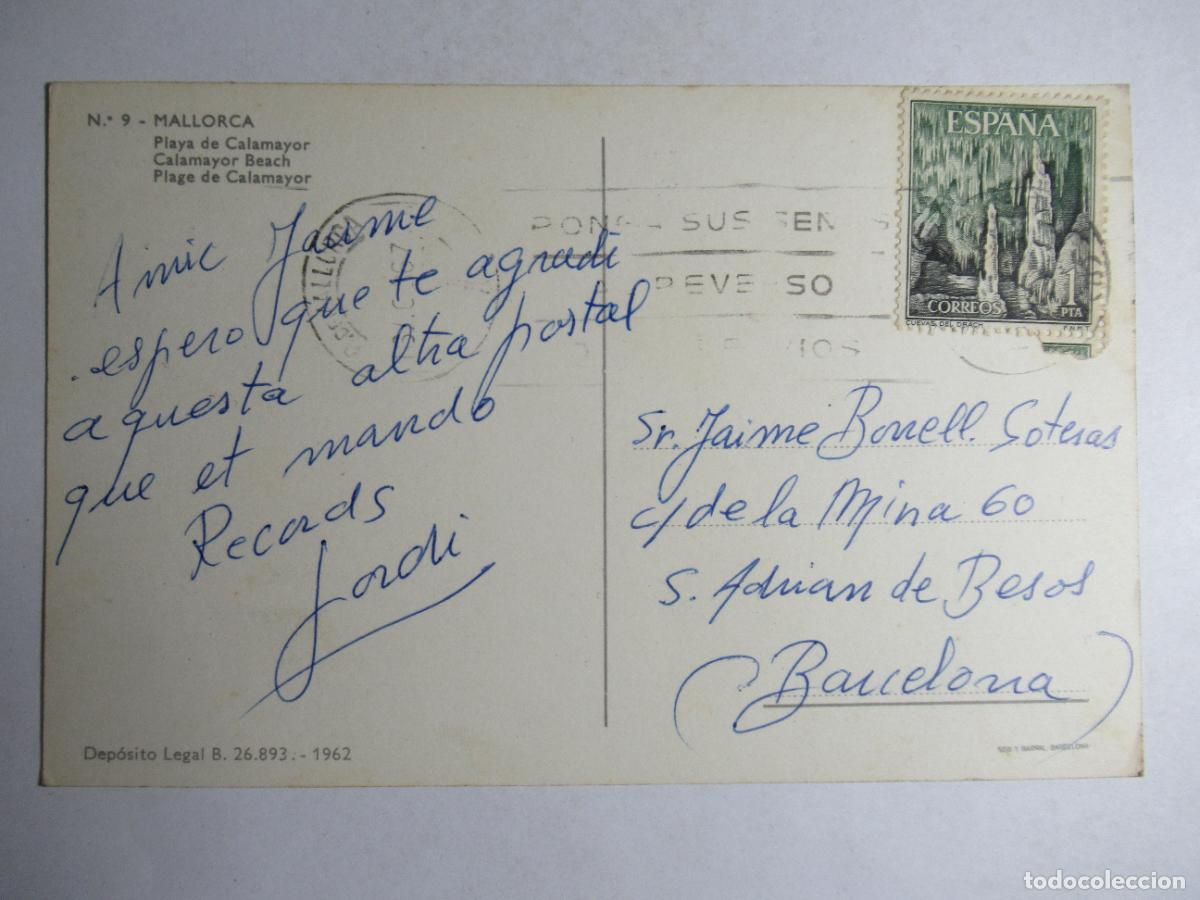 N.º 9 - MALLORCA
Playa de Calamayor
Calamayor Beach
Plage de Calamayor
Amic Jaume
espero que te agradi
aquesta altra postal
que et mando
Records
Jordi
Depósito Legal B. 26.893. - 1962
SUS
ESPAÑA
CORREOS
1
PTA
CUEVAS DEL DRACH
F.N.M.T.
Sr. Jaime Borrell. Soteras
c/ de la Mina 60
S. Adrian de Besos
(Barcelona)
SEIX Y BARRAL. BARCELONA
todocoleccion